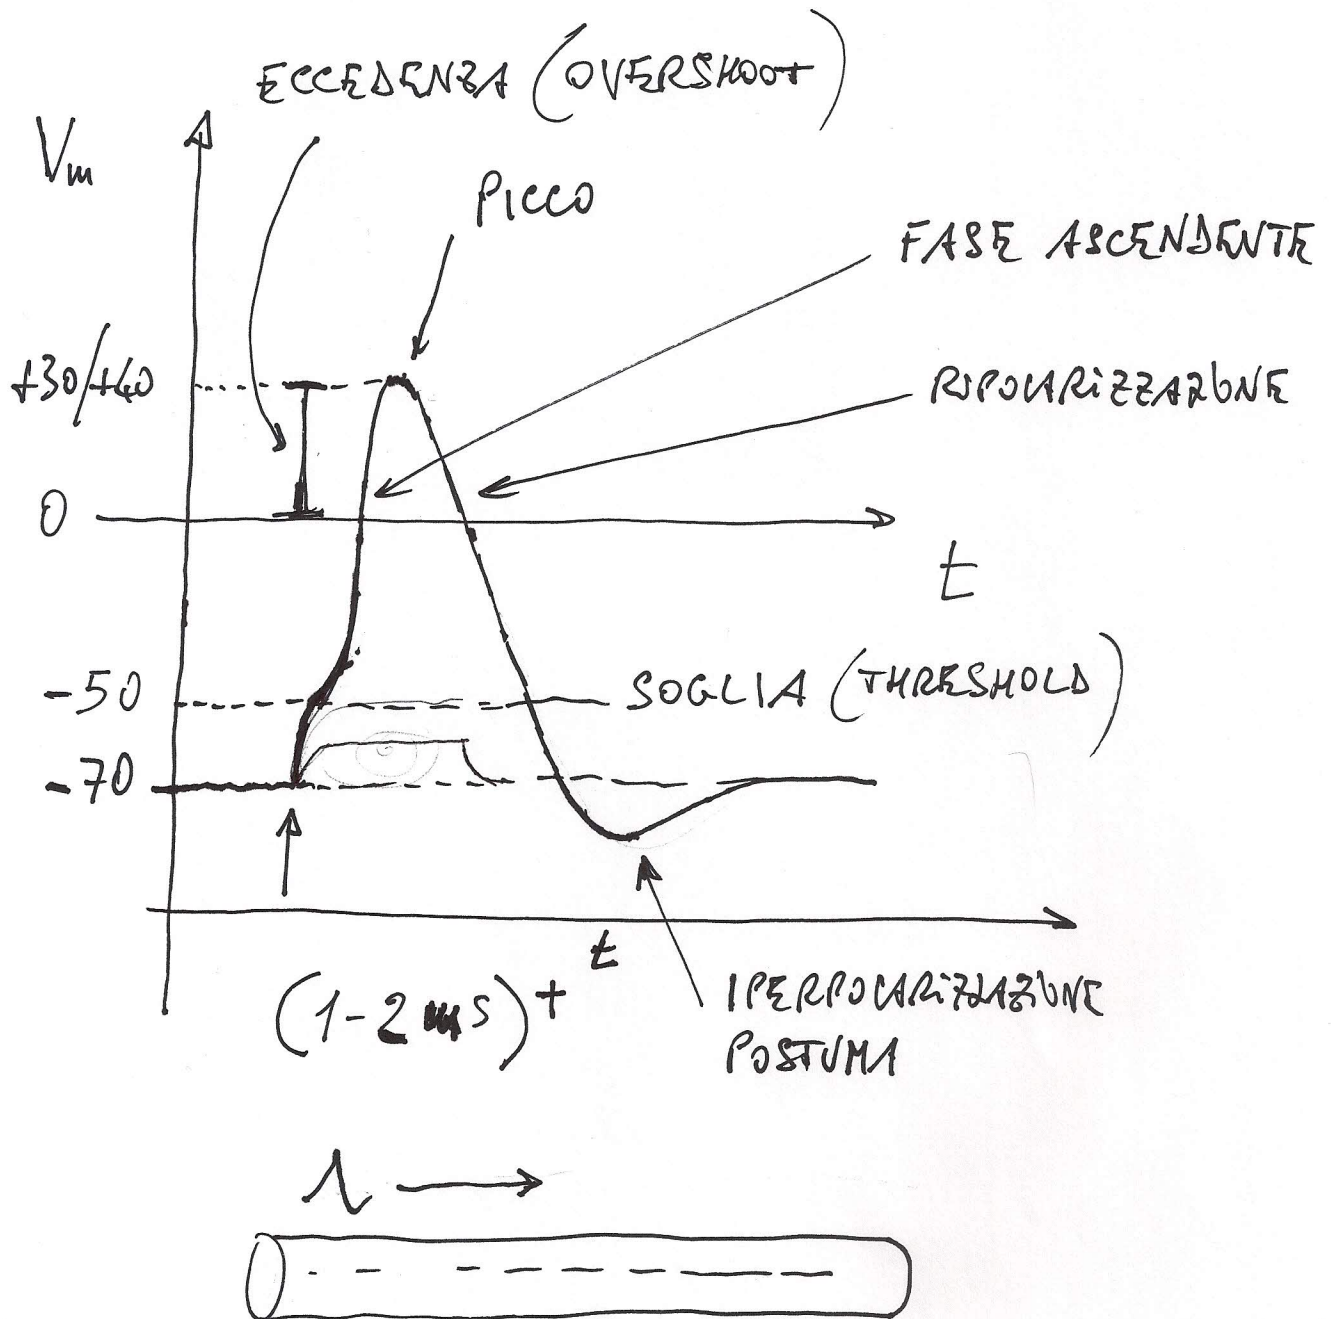 ECCEDENZA (OVERSHOOT)
Vm
PICCO
FASE ASCENDENTE
+30/+40
RIPOLARIZZAZIONE
0
t
-50
SOGLIA (THRESHOLD)
-70
t
(1-2 ms)+
IPERPOLARIZZAZIONE
POSTUMA